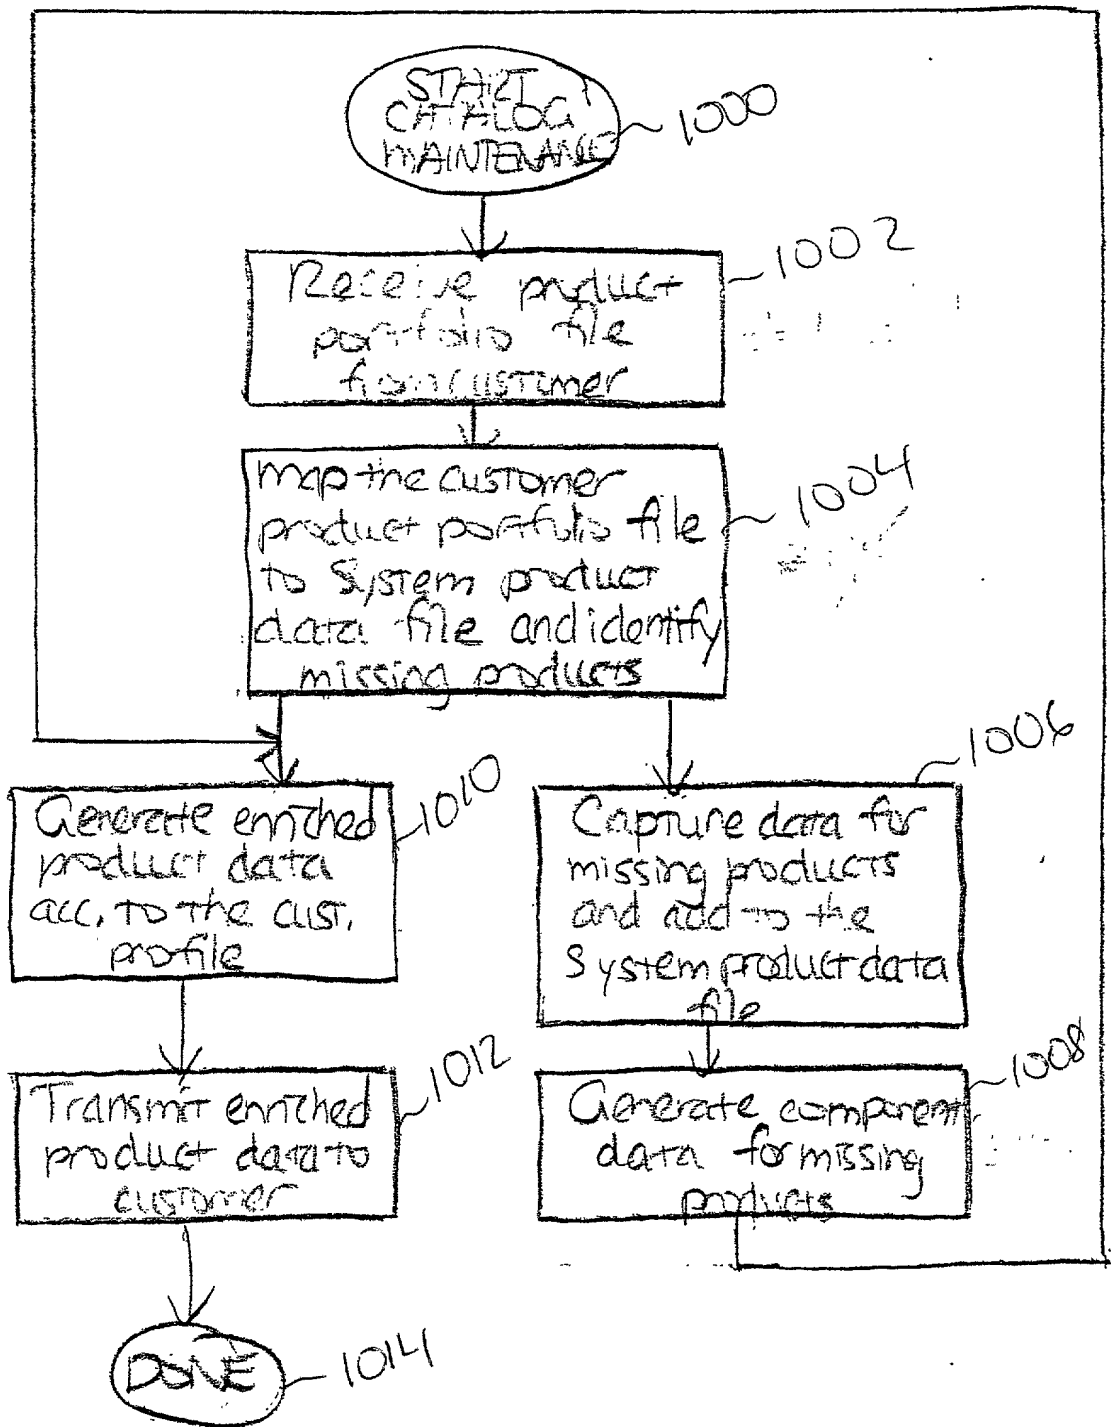 START
CATALOG
MAINTENANCE
1000
Receive product
portfolio file
from customer
1002
map the customer
product portfolio file
to System product
data file and identify
missing products
1004
Generate enriched
product data
acc. to the cust.
profile
1010
Capture data for
missing products
and add to the
System product data
file
1006
Transmit enriched
product data to
customer
1012
Generate component
data for missing
products
1008
DONE
1014